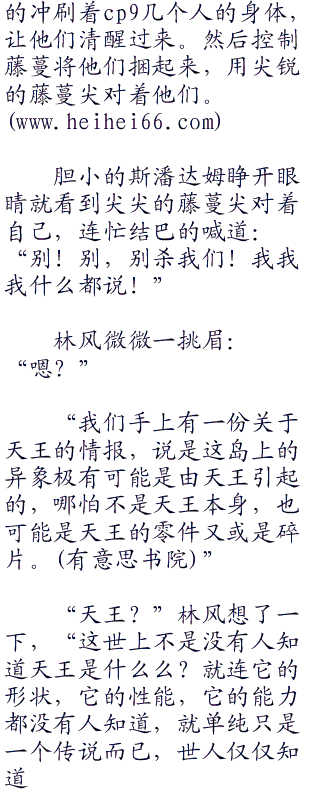 的冲刷着cp9几个人的身体，
让他们清醒过来。然后控制
藤蔓将他们捆起来，用尖锐
的藤蔓尖对着他们。
(www.heihei66.com)
胆小的斯潘达姆睁开眼
睛就看到尖尖的藤蔓尖对着
自己，连忙结巴的喊道：
“别！别，别杀我们！我我
我什么都说！”
林风微微一挑眉：
“嗯？”
“我们手上有一份关于
天王的情报，说是这岛上的
异象极有可能是由天王引起
的，哪怕不是天王本身，也
可能是天王的零件又或是碎
片。(有意思书院)”
“天王？”林风想了一
下，“这世上不是没有人知
道天王是什么么？就连它的
形状，它的性能，它的能力
都没有人知道，就单纯只是
一个传说而已，世人仅仅知
道